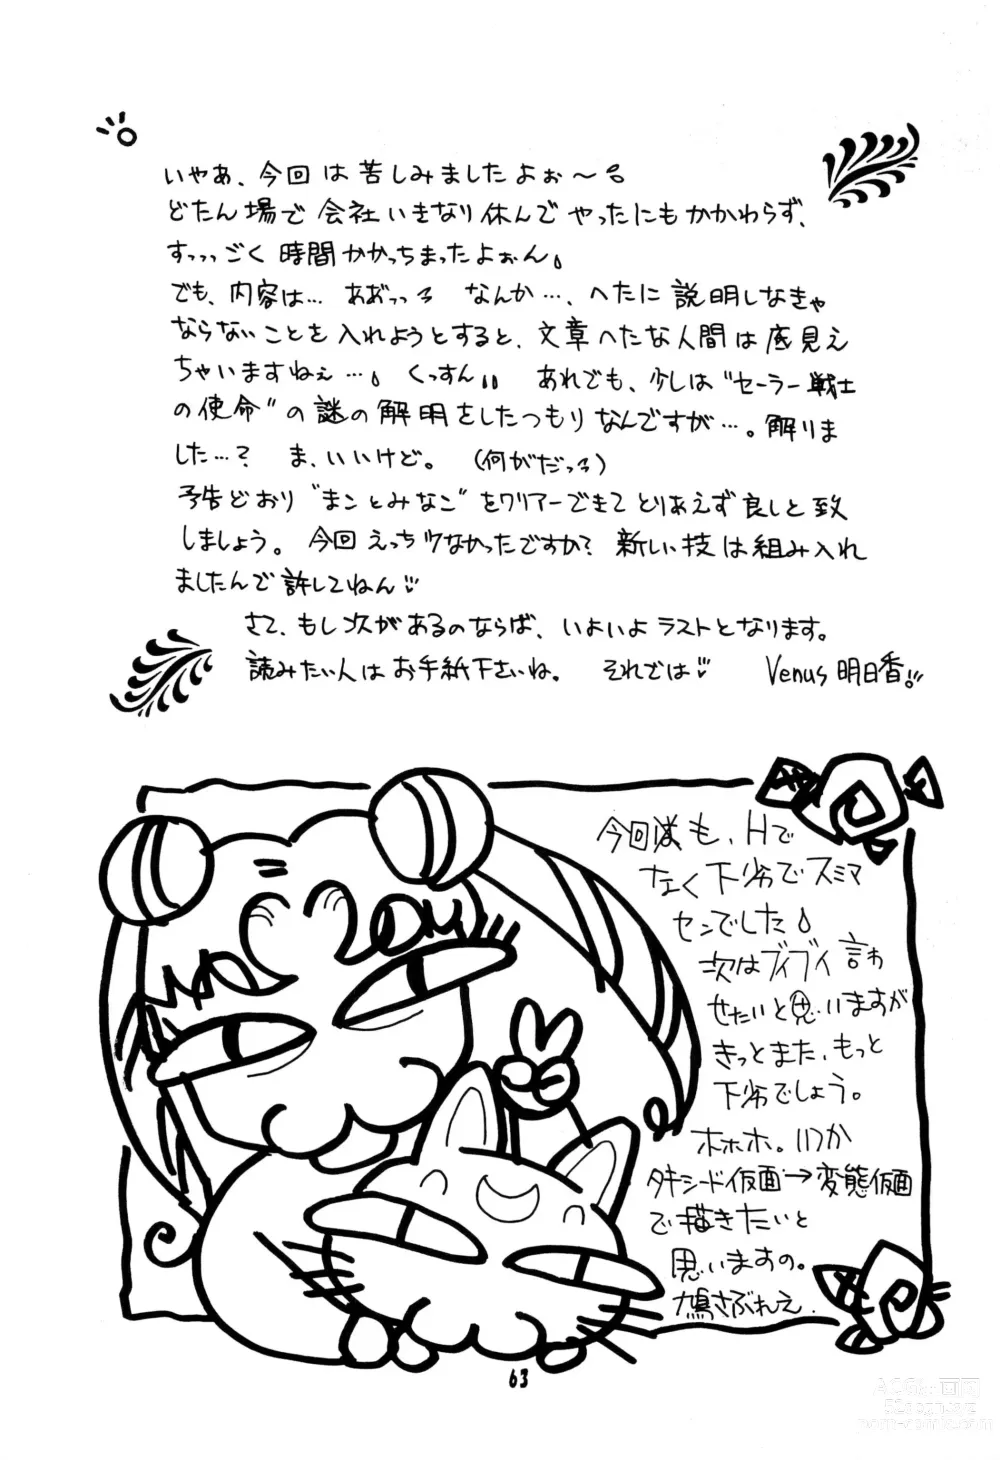 いやあ、今回は苦しみましたよぉ～
どたん場で会社いきなり休んでやったにもかかわらず、
すっっっごく時間かかっちまったよぉん。
でも、内容は… ああ゛っっ なんか…、へたに説明しなきゃ
ならないことを入れようとすると、文章へたな人間は底見え
ちゃいますねぇ…。くっすん。 あれでも、少しは“セーラー戦士
の使命”の謎の解明をしたつもりなんですが…。解りま
した…? ま、いいけど。 (何がだっ)
予告どおり“まことみなこ”をクリアーできてとりあえず良しと致
しましょう。今回えっち少なかったですか? 新しい技は組み入れ
ましたんで許してねん♡
さて、もし次があるのならば、いよいよラストとなります。
読みたい人はお手紙下さいね。 それでは♡ Venus明日香
今回は も、Hで
なく下劣でスミマ
センでした
次はブイブイ言わ
せたいと思いますが
きっとまた、もっと
下劣でしょう。
ホホホ。いつか
タキシード仮面→変態仮面
で描きたいと
思いますの。
鳩さぶれえ.
63